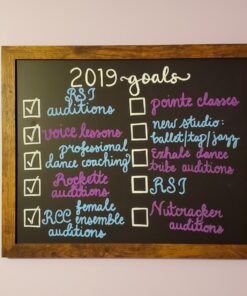 2019 goals
RSI
auditions
voice lessons
professional
dance coaching
Rockette
auditions
female
RCC ensemble
auditions
pointe classes
new studio:
ballet/tap/jazz
Exhale dance
tribe auditions
RSI
Nutcracker
auditions